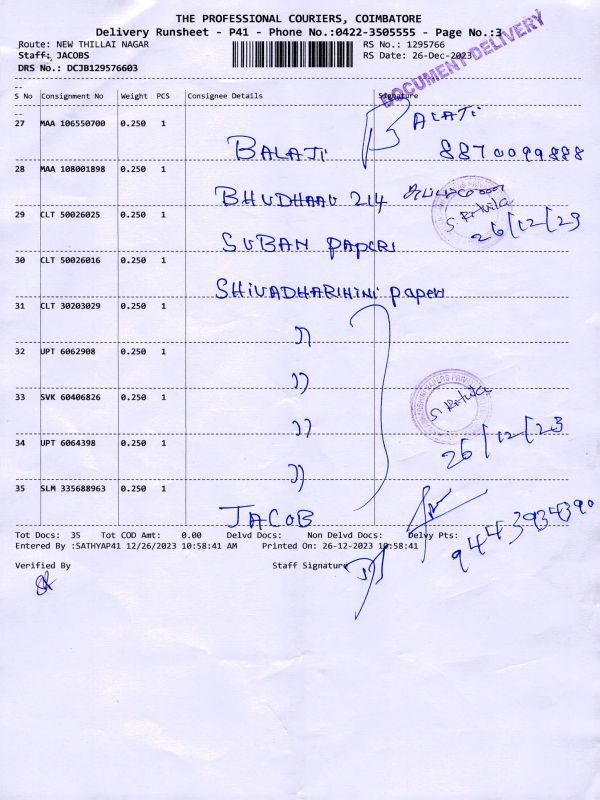 THE PROFESSIONAL COURIERS, COIMBATORE
Delivery Runsheet - P41 - Phone No.:0422-3505555 - Page No.:3
Route: NEW THILLAI NAGAR RS No.: 1295766
Staff: JACOBS RS Date: 26-Dec-2023
DRS No.: DCJB129576603
DOCUMENT DELIVERY
S No Consignment No Weight PCS Consignee Details Signature
27 MAA 106550700 0.250 1 BALAJI BALAJI
8870099888
28 MAA 108001898 0.250 1 BHUDHAAU 214
29 CLT 50026025 0.250 1 SUBAN PAPERS 26/12/23
30 CLT 50026016 0.250 1 SHIVADHARIHINI papers
31 CLT 30203029 0.250 1 ))
32 UPT 6062908 0.250 1 ))
33 SVK 60406826 0.250 1 ))
26/12/23
34 UPT 6064398 0.250 1 ))
35 SLM 335688963 0.250 1 JACOB
9443934390
Tot Docs: 35 Tot COD Amt: 0.00 Delvd Docs: Non Delvd Docs: Delvy Pts:
Entered By :SATHYAP41 12/26/2023 10:58:41 AM Printed On: 26-12-2023 10:58:41
Verified By Staff Signature